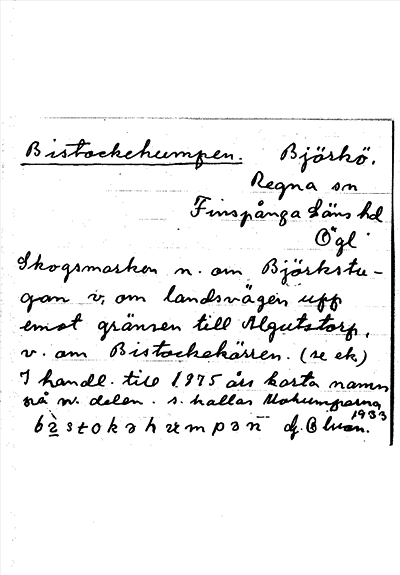 Bistockehumpen. Björkö.
Regna sn
Finspånga läns hd
Ögl
Skogsmarken n. om Björkstu-
gan v. om landsvägen upp
emot gränsen till Algutstorp,
v. om Bistockekärren. (se ek)
I handl. till 1875 års karta namn
på n. delen. s. kallas
1933